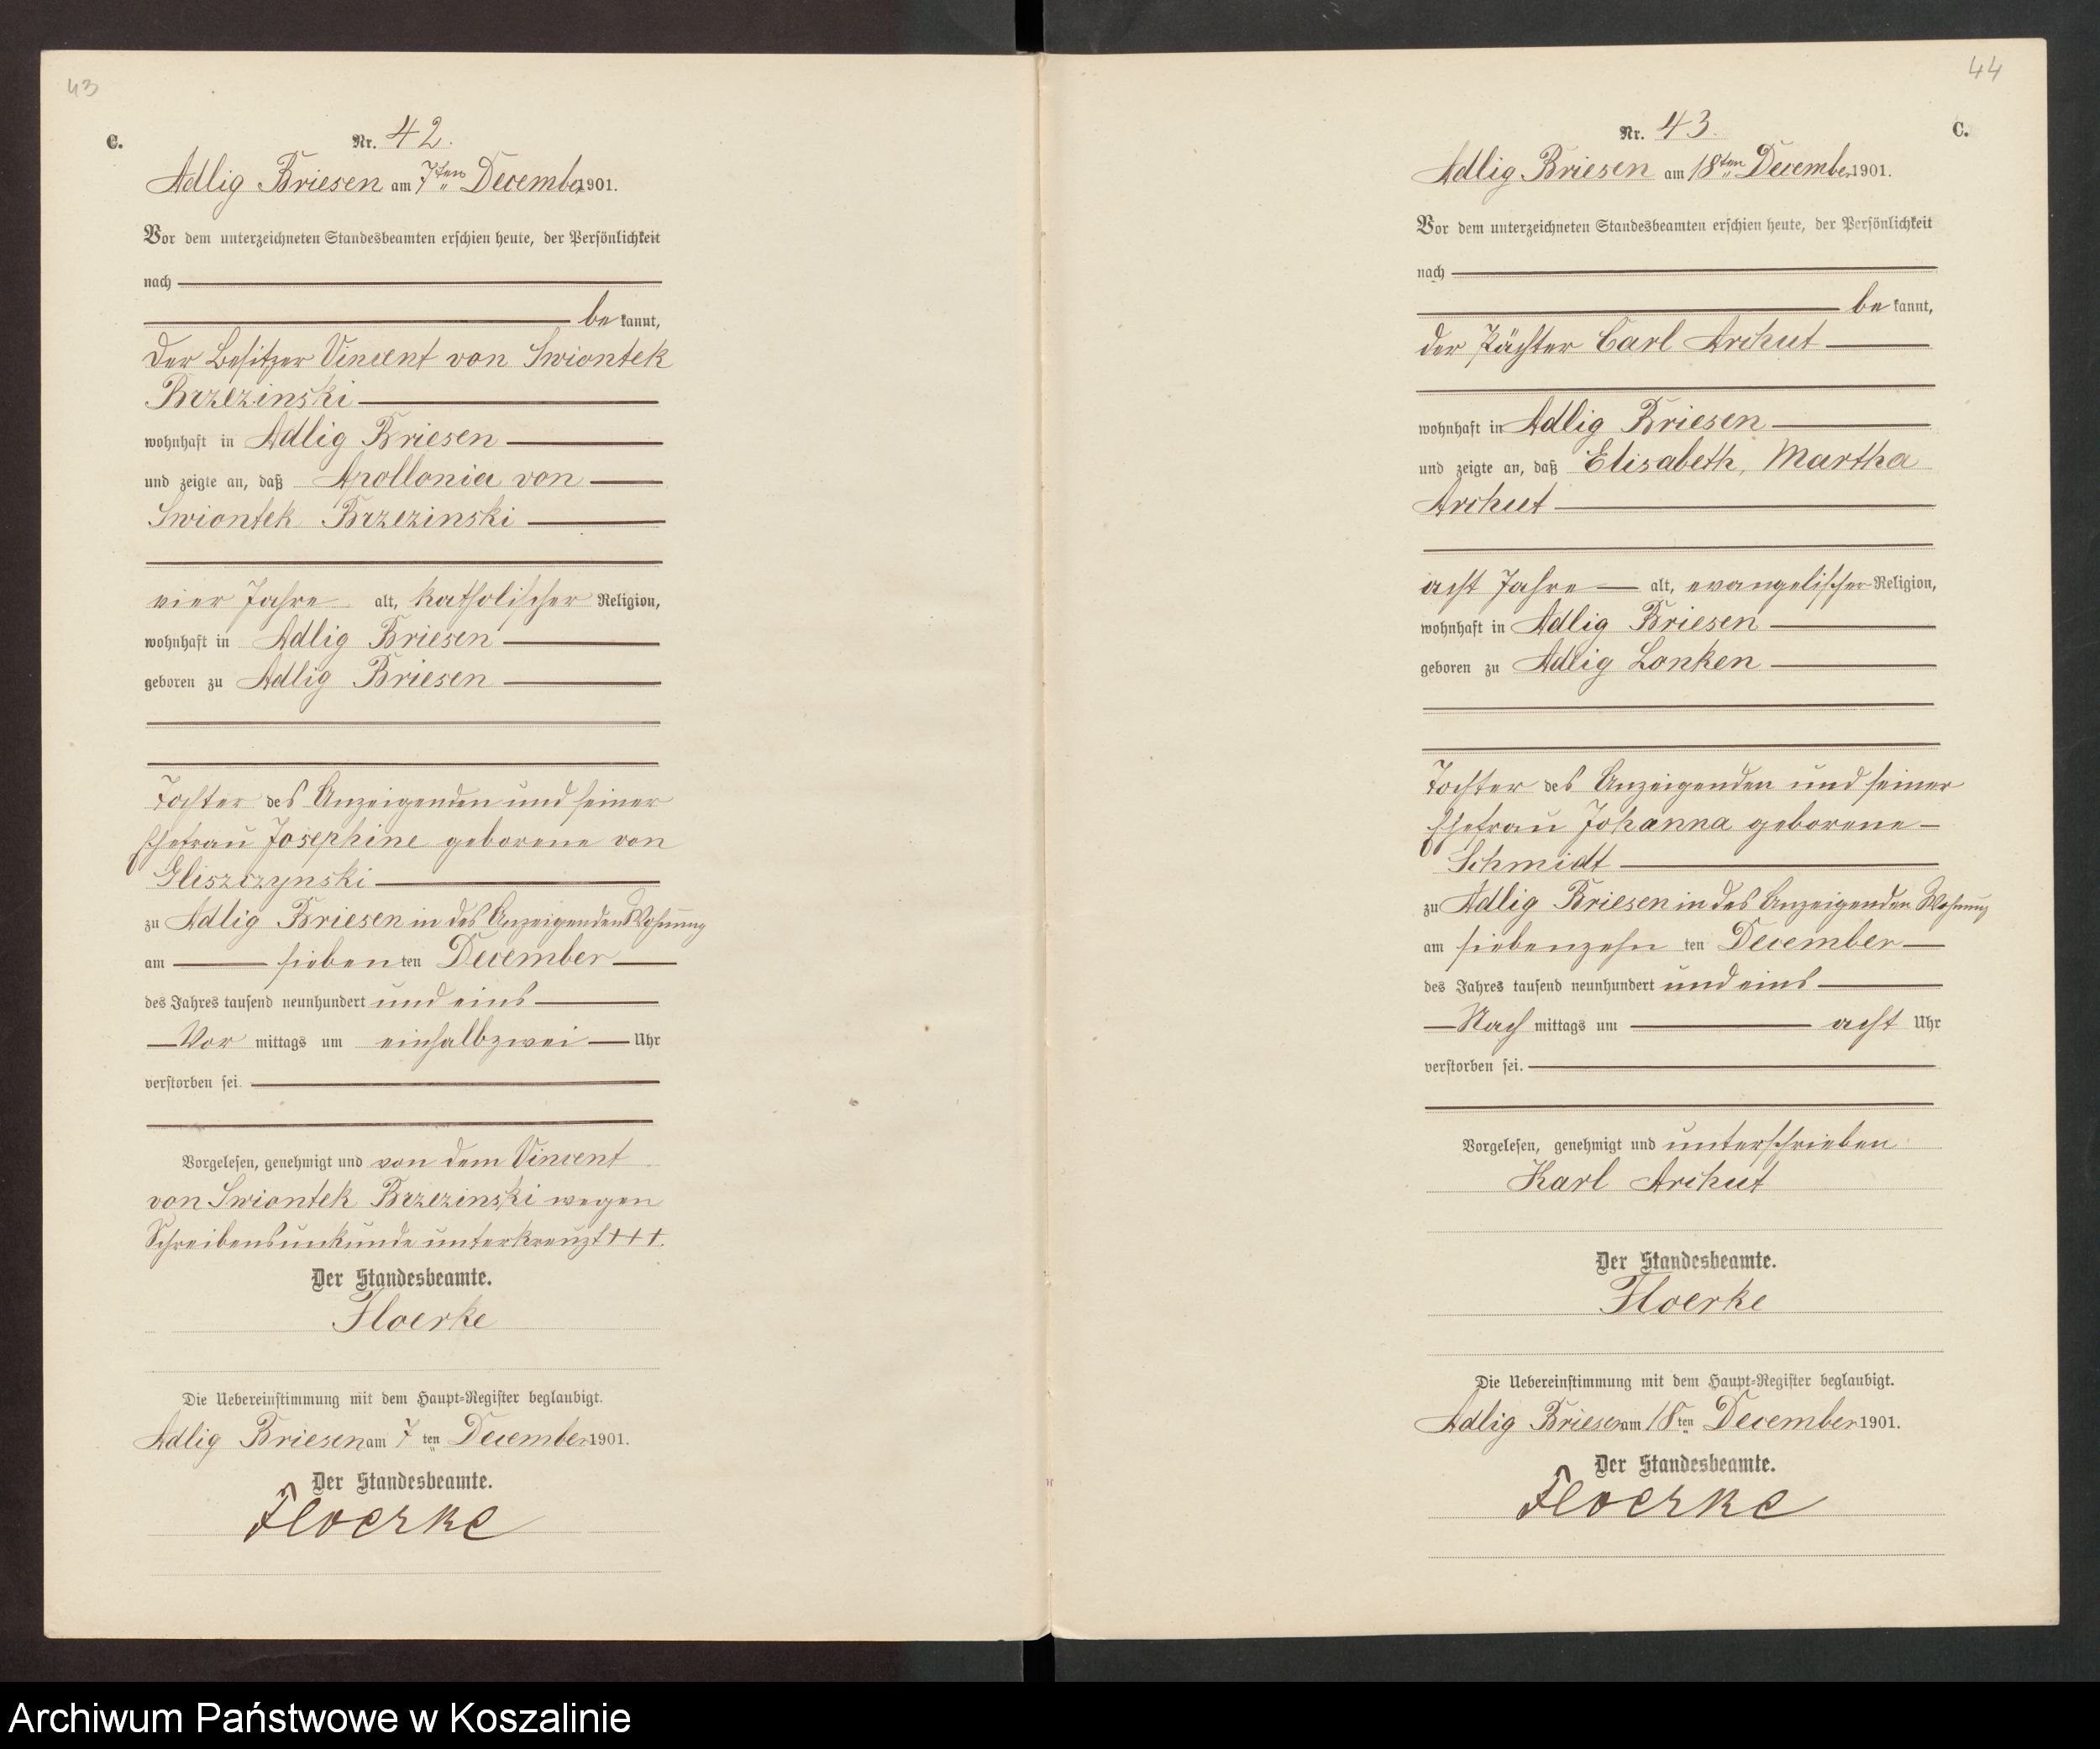 43
C.
Nr. 42.
Adlig Briesen am 7ten December 1901.
Vor dem unterzeichneten Standesbeamten erschien heute, der Persönlichkeit
nach
be kannt,
der Besitzer Vincent von Swiontek
Brzezinski
wohnhaft in Adlig Briesen
und zeigte an, daß Apollonia von
Swiontek Brzezinski
vier Jahre alt, katholischer Religion,
wohnhaft in Adlig Briesen
geboren zu Adlig Briesen
Tochter des Anzeigenden und seiner
Ehefrau Josephine geborene von
Gliszczynski
zu Adlig Briesen in des Anzeigenden Wohnung
am sieben ten December
des Jahres tausend neunhundert und eins
Vor mittags um einhalbzwei Uhr
verstorben sei.
Vorgelesen, genehmigt und von dem Vincent
von Swiontek Brzezinski wegen
Schreibensunkunde unterkreuzt +++.
Der Standesbeamte.
Floerke
Die Uebereinstimmung mit dem Haupt-Register beglaubigt.
Adlig Briesen am 7 ten December 1901.
Der Standesbeamte.
Floerke
44
C.
Nr. 43.
Adlig Briesen am 18ten December 1901.
Vor dem unterzeichneten Standesbeamten erschien heute, der Persönlichkeit
nach
be kannt,
der Pächter Carl Archut
wohnhaft in Adlig Briesen
und zeigte an, daß Elisabeth, Martha
Archut
acht Jahre alt, evangelischer Religion,
wohnhaft in Adlig Briesen
geboren zu Adlig Lonken
Tochter des Anzeigenden und seiner
Ehefrau Johanna geborene
Schmidt
zu Adlig Briesen in des Anzeigenden Wohnung
am siebenzehn ten December
des Jahres tausend neunhundert und eins
Nach mittags um acht Uhr
verstorben sei.
Vorgelesen, genehmigt und unterschrieben
Karl Archut
Der Standesbeamte.
Floerke
Die Uebereinstimmung mit dem Haupt-Register beglaubigt.
Adlig Briesen am 18 ten December 1901.
Der Standesbeamte.
Floerke
Archiwum Państwowe w Koszalinie